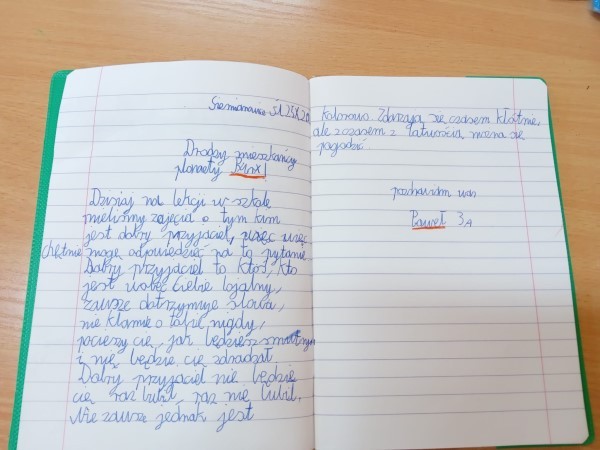 Drodzy mieszkańcy
planety Kinx!
Dzisiaj na lekcji w szkole
mieliśmy zajęcia o tym kim
jest dobry przyjaciel, więc
chętnie mogę odpowiedzieć na to pytanie.
Dobry przyjaciel to ktoś, kto
jest wobec ciebie lojalny,
zawsze dotrzymuje słowa,
nie kłamie o tobie nigdy,
pocieszy cię, jak będziesz smutnym
i nie będzie cię zdradzał.
Dobry przyjaciel nie będzie
cię raz lubił, raz nie lubił.
Nie zawsze jednak jest
kolorowo. Zdarzają się czasem kłótnie,
ale z czasem z łatwością można się
pogodzić
pozdrawiam was
Paweł 3A